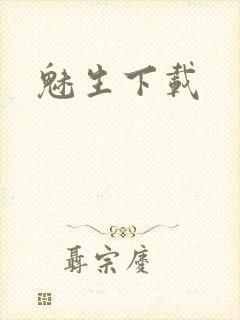 魅生下載
聶宗慶